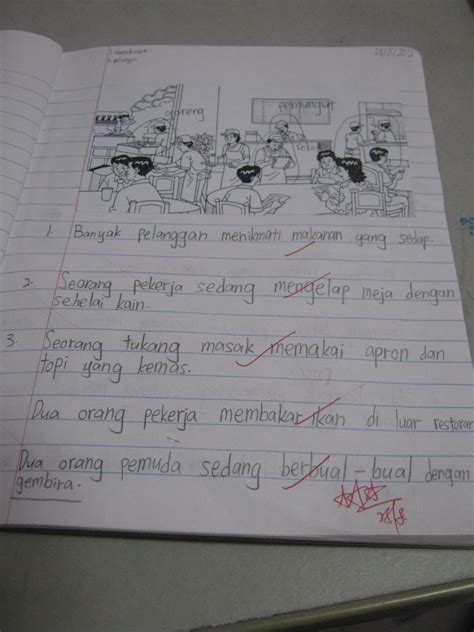 2. pelanggan
28/8/2012
goreng
1. Banyak pelanggan menikmati makanan yang sedap.
2. Seorang pekerja sedang mengelap meja dengan
sehelai kain.
3. Seorang tukang masak memakai apron dan
topi yang kemas.
Dua orang pekerja membakar ikan di luar restoran
Dua orang pemuda sedang berbual-bual dengan
gembira.
28/8